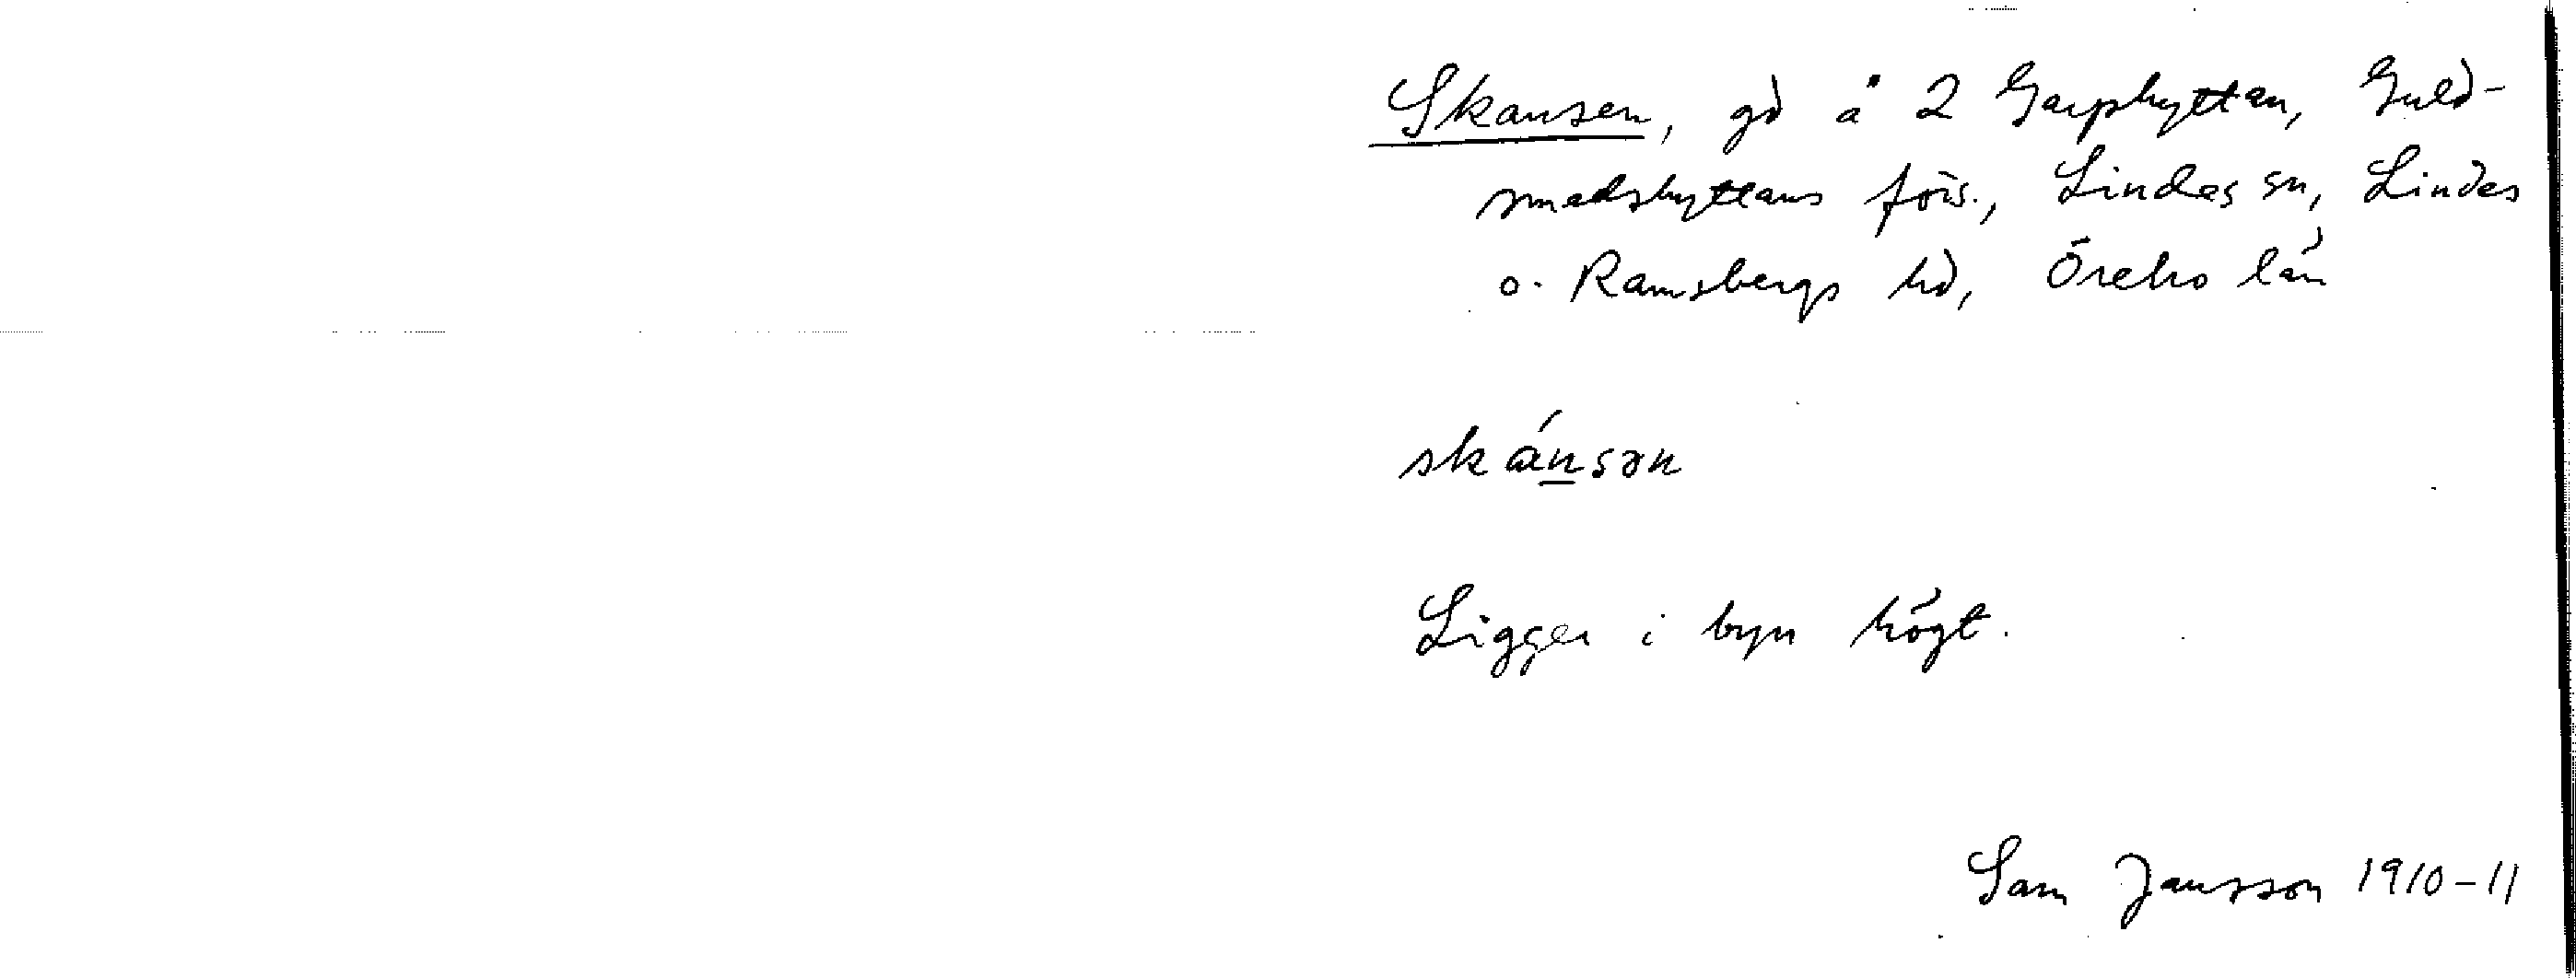 Skansen, gd å 2 Garphyttan, Guld-
smedshyttans förs., Lindes sn, Lindes
o. Ramsbergs hd, Örebro län
skánsən
Ligger i byn högt.
Sam Jansson 1910-11